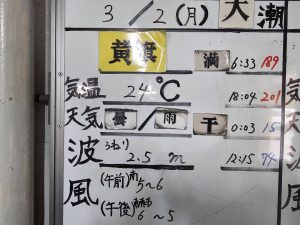 3/2(月) 大潮
黄砂 満 6:33 189
気温 24℃ 18:04 201
天気 曇/雨 干 0:03 15
波 うねり 2.5m 12:15 74
風 (午前)南 5~6
(午後) 6~5
風